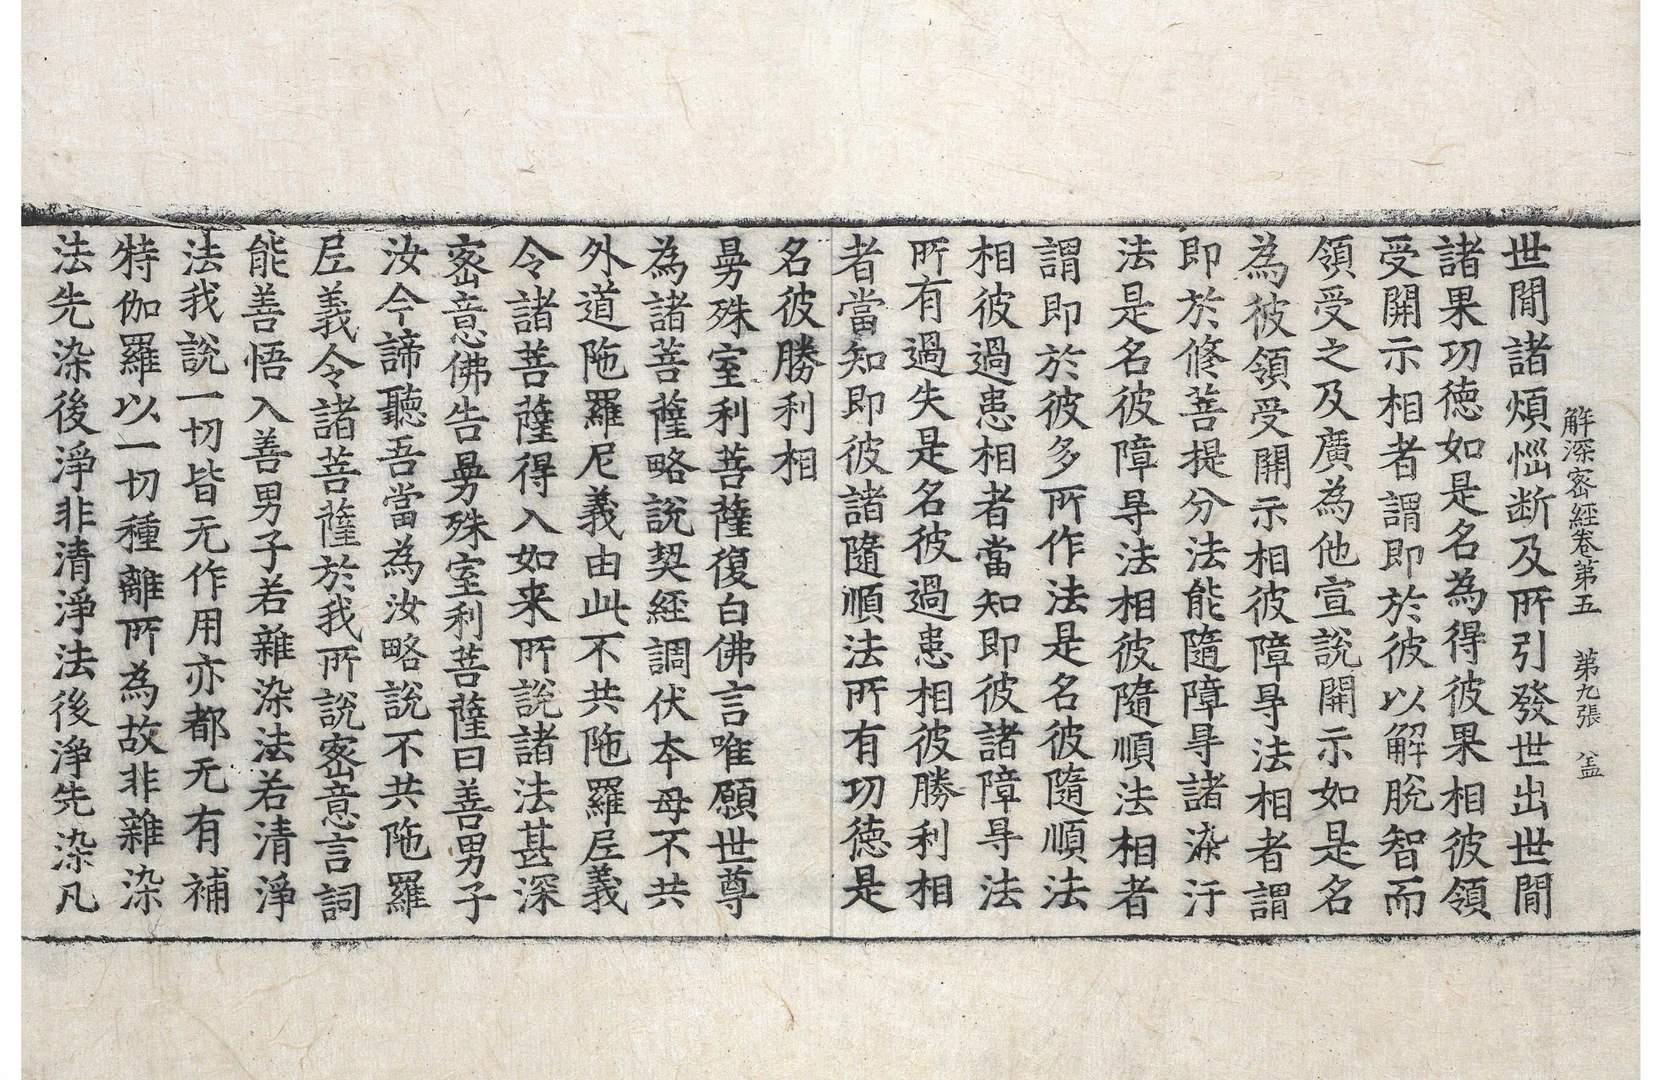 解深密經卷第五 第九張 盖
世間諸煩惱断及所引發世出世間
諸果功德如是名為得彼果相彼領
受開示相者謂即於彼以解脫智而
領受之及廣為他宣說開示如是名
為彼領受開示相彼障㝵法相者謂
即於修菩提分法能隨障㝵諸染汙
法是名彼障㝵法相彼隨順法相者
謂即於彼多所作法是名彼隨順法
相彼過患相者當知即彼諸障㝵法
所有過失是名彼過患相彼勝利相
者當知即彼諸隨順法所有功德是
名彼勝利相
曼殊室利菩薩復白佛言唯願世尊
為諸菩薩略說契經調伏本母不共
外道陁羅尼義由此不共陁羅尼義
令諸菩薩得入如来所說諸法甚深
密意佛告曼殊室利菩薩曰善男子
汝今諦聽吾當為汝略說不共陁羅
尼義令諸菩薩於我所說密意言詞
能善悟入善男子若雜染法若清淨
法我說一切皆无作用亦都无有補
特伽羅以一切種離所為故非雜染
法先染後淨非清淨法後淨先染凡